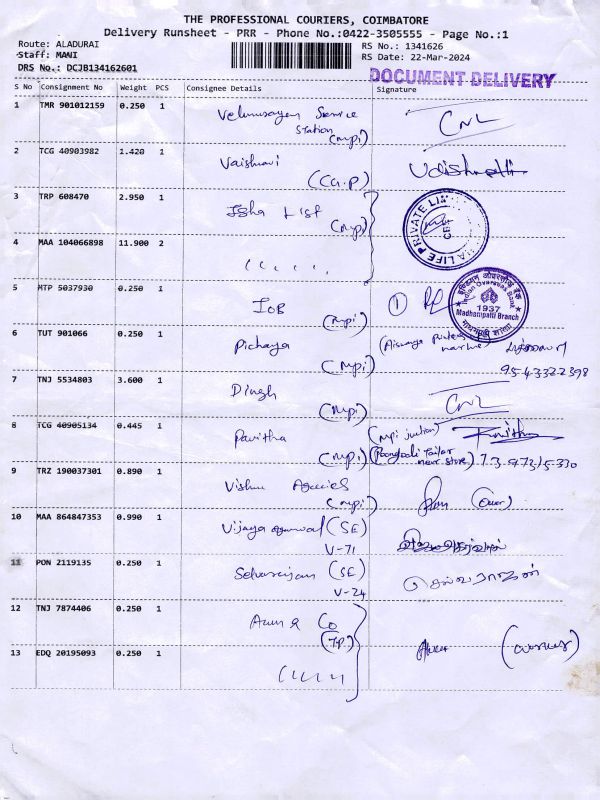 THE PROFESSIONAL COURIERS, COIMBATORE
Delivery Runsheet - PRR - Phone No.:0422-3505555 - Page No.:1
Route: ALADURAI RS No.: 1341626
Staff: MANI RS Date: 22-Mar-2024
DRS No.: DCJB134162601
DOCUMENT DELIVERY
S No Consignment No Weight PCS Consignee Details Signature
1 TMR 901012159 0.250 1 Service
Station
(Mpi)
2 TCG 40903982 1.420 1 Vaishnavi
(CG.P)
3 TRP 608470 2.950 1 Isha List
(Mpi)
LIFE PRIVATE LIM
4 MAA 104066898 11.900 2 、、、、、
5 MTP 5037930 0.250 1 IOB ①
(Mpi)
इण्डियन ओवरसीज़ बैंक
Indian Overseas Bank
1937
Madhampatti Branch
6 TUT 901066 0.250 1 Pichaya
(Mpi) 9543322398
7 TNJ 5534803 3.600 1
(Mpi)
8 TCG 40905134 0.445 1 Pavitha (Mpi junction)
(Mpi) near store)
9 TRZ 190037301 0.890 1 Vishnu
(Mpi)
10 MAA 864847353 0.990 1 Vijaya Agarwal (SE)
V-71
11 PON 2119135 0.250 1 Selvarajan (SE) செல்வராஜன்
V-24
12 TNJ 7874406 0.250 1 Arun & Co
(TP)
13 EDQ 20195093 0.250 1 、、、、、